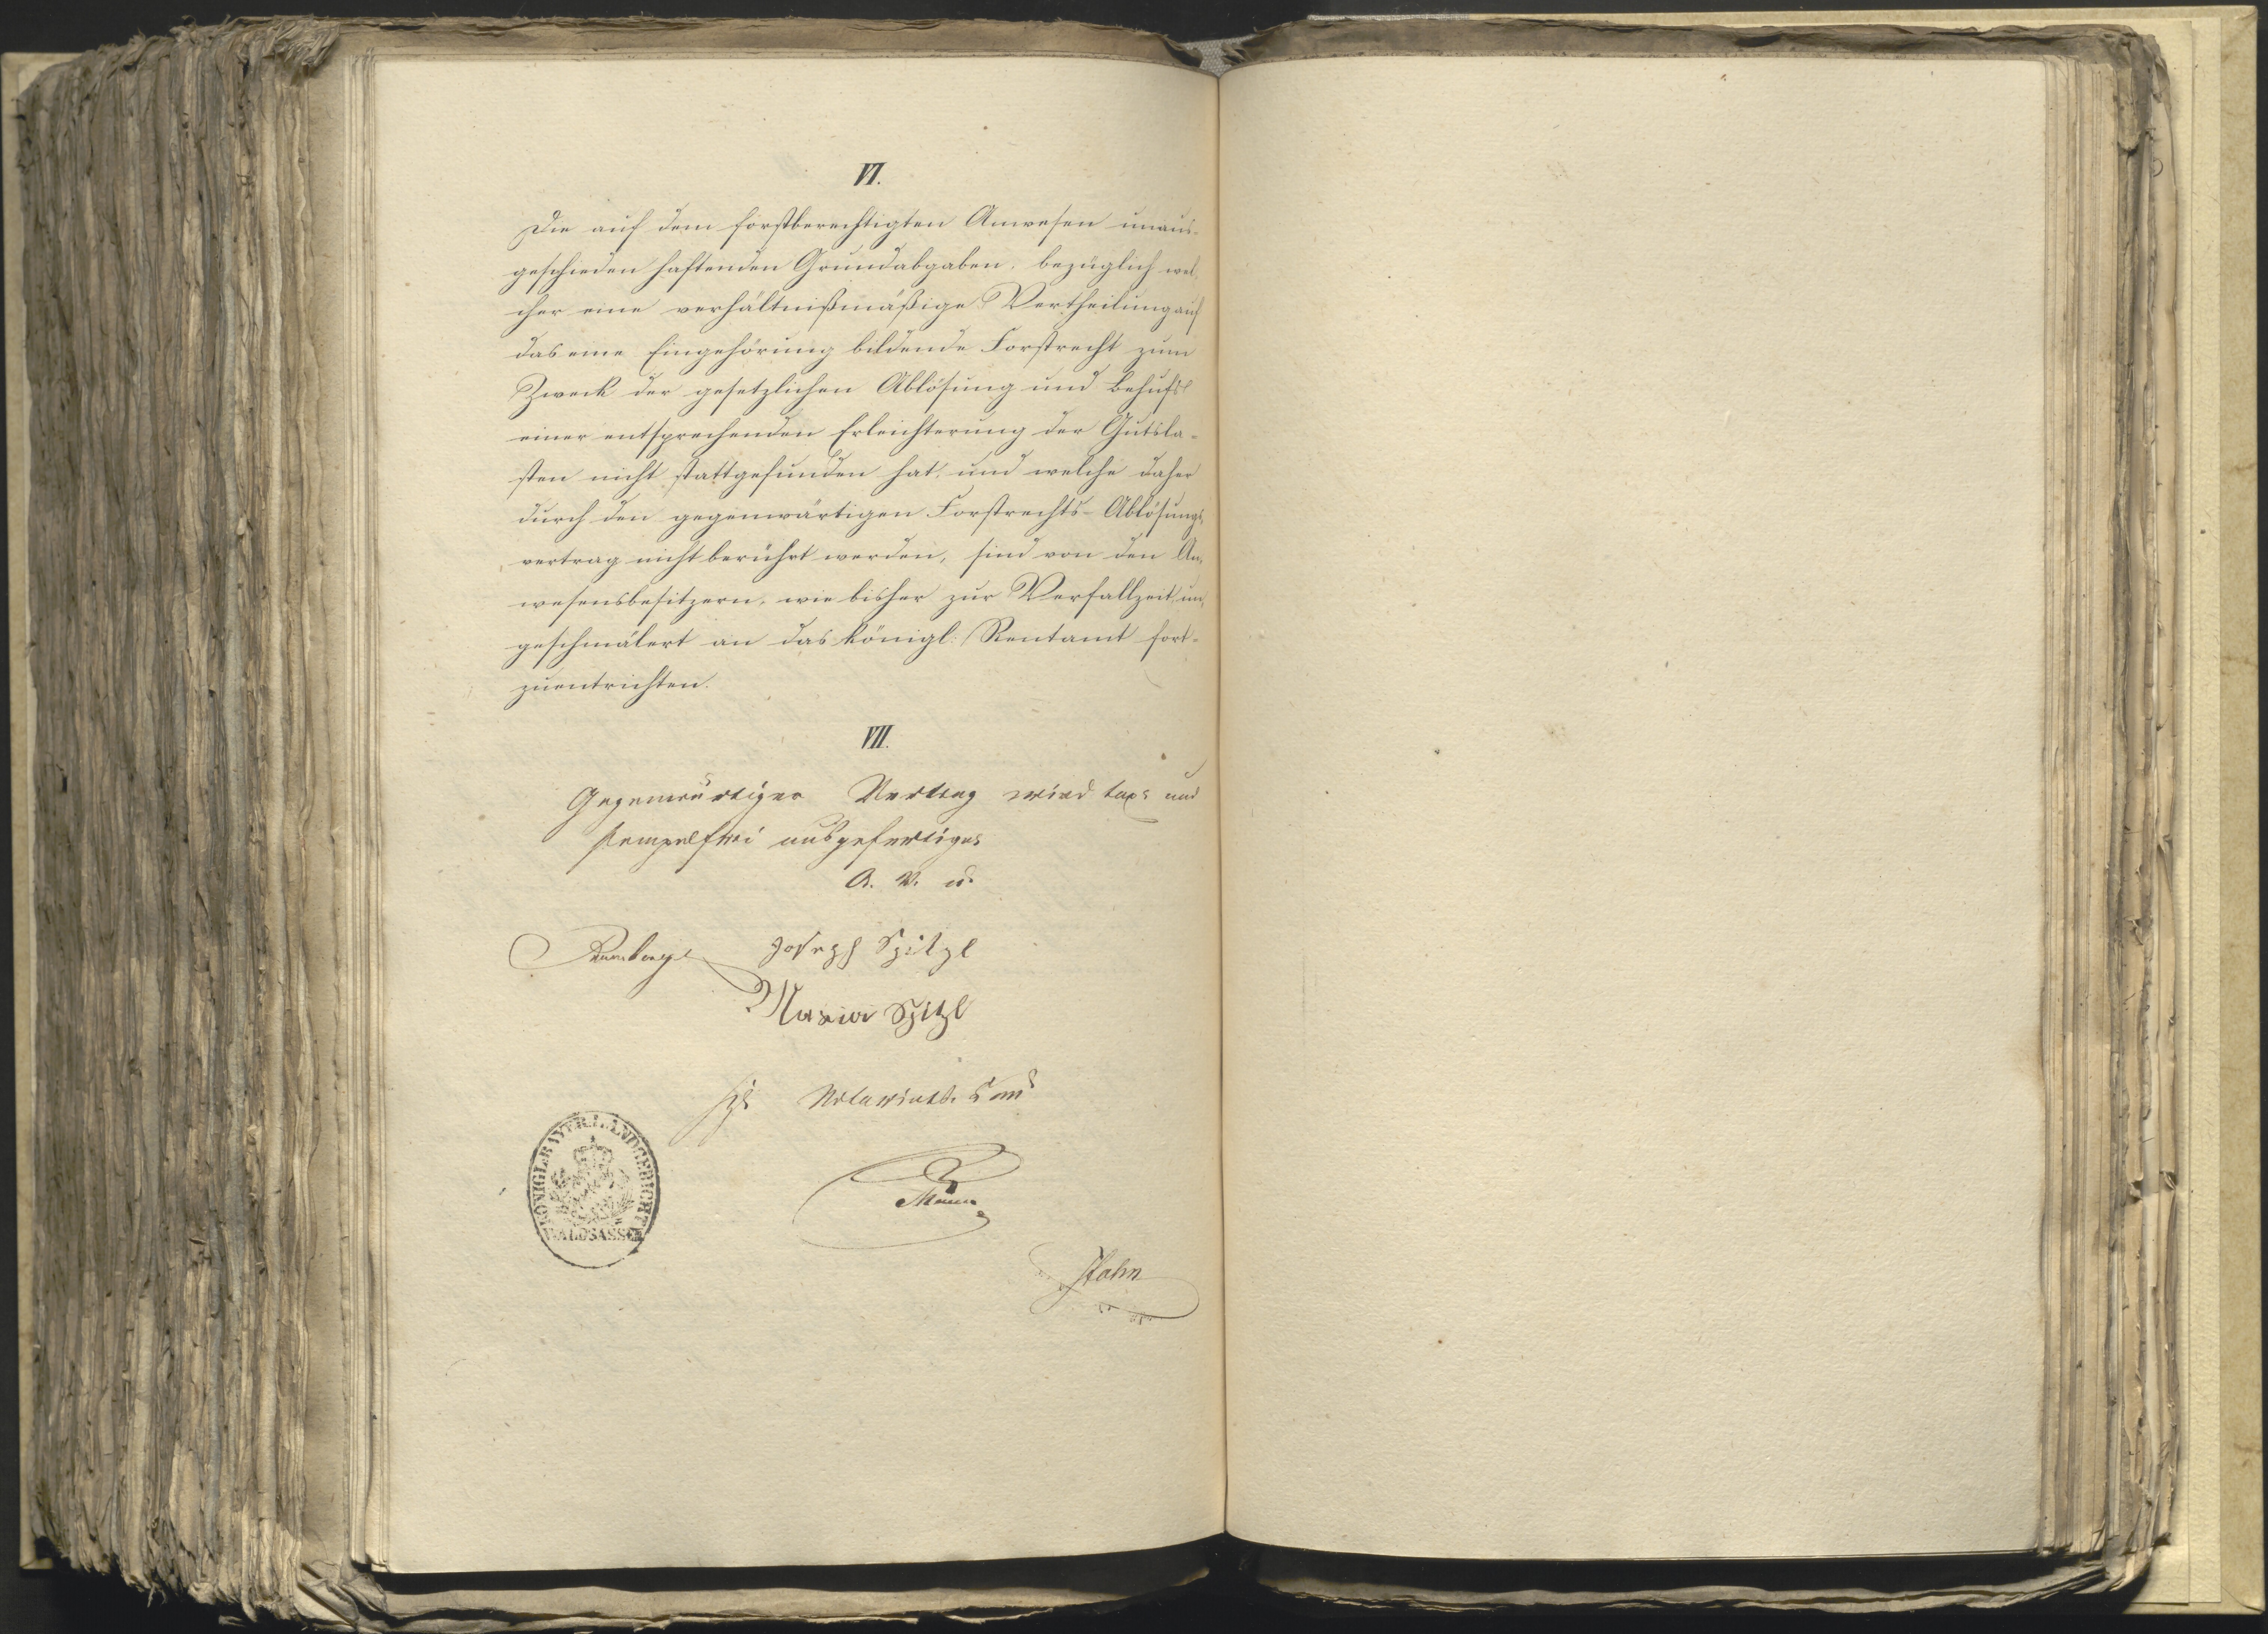 VI.
Die auf dem forstberechtigten Anwesen unaus-
geschieden haftenden Grundabgaben, bezüglich wel-
cher eine verhältnißmäßige Vertheilung auf
das eine Eingehörung bildende Forstrecht zum
Zweck der gesetzlichen Ablösung und Behufs
einer entsprechenden Erleichterung der Gutsla-
sten nicht stattgefunden hat, und welche daher
durch den gegenwärtigen Forstrechts-Ablösungs-
vertrag nicht berührt werden, sind von den An-
wesensbesitzern, wie bisher zur Verfallzeit un-
geschmälert an das königl: Rentamt fort-
zuentrichten.
VII.
Gegenwärtiger Vertrag wird tax- und
stempelfrei ausgefertiget
A. V. U.
Joseph Spitzl
Maria Spitzl
KÖNIGL. BAYER. LANDGERICHT
WALDSASSEN
Hahn